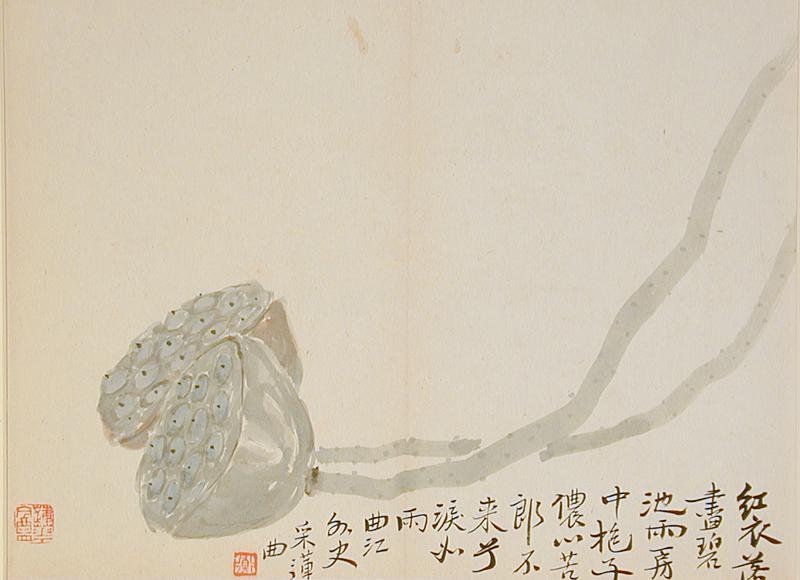 紅衣落
盡碧
池雨房
中抱子
儂心苦
郎不
来兮
淚如
雨
曲江
外史
采蓮
曲